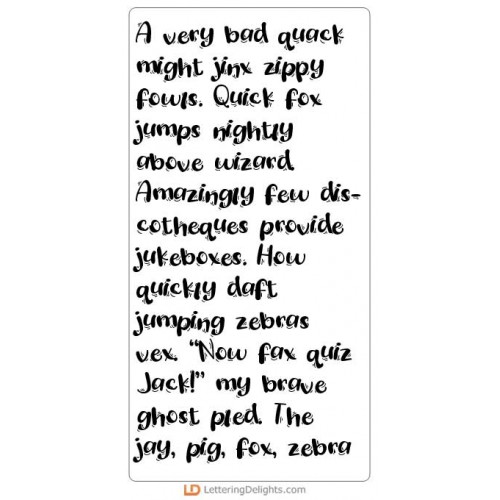 A very bad quack
might jinx zippy
fowls. Quick fox
jumps nightly
above wizard.
Amazingly few dis-
cotheques provide
jukeboxes. How
quickly daft
jumping zebras
vex. “Now fax quiz
Jack!” my brave
ghost pled. The
jay, pig, fox, zebra
LD LetteringDelights.com